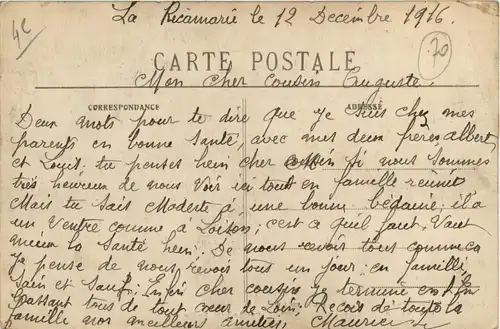 4C
La Ricamarie le 12 Decembre 1916.
70
CARTE POSTALE
Mon cher cousin Auguste.
CORRESPONDANCE
ADRESSE
Deux mots pour te dire que je suis chez mes
parents en bonne santé, avec mes deux frères albert
et Louis. tu penses hein cher cousin si nous sommes
très heureux de nous voir ici tout en famille reunit
Mais tu sais Modeste à une bonne bedaine; il a
un ventre comme à Loison; c'est a qu'il faut. Vaut
mieux la santé hein. De nous revoir tous comme ca
je pense de nous revoir tous un jour; en famille
sain et sauf. Enfin cher cousin je termine en
passant tous de tout cœur de Loin. Reçois de toute la
famille nos meilleurs amitiés. Maurice